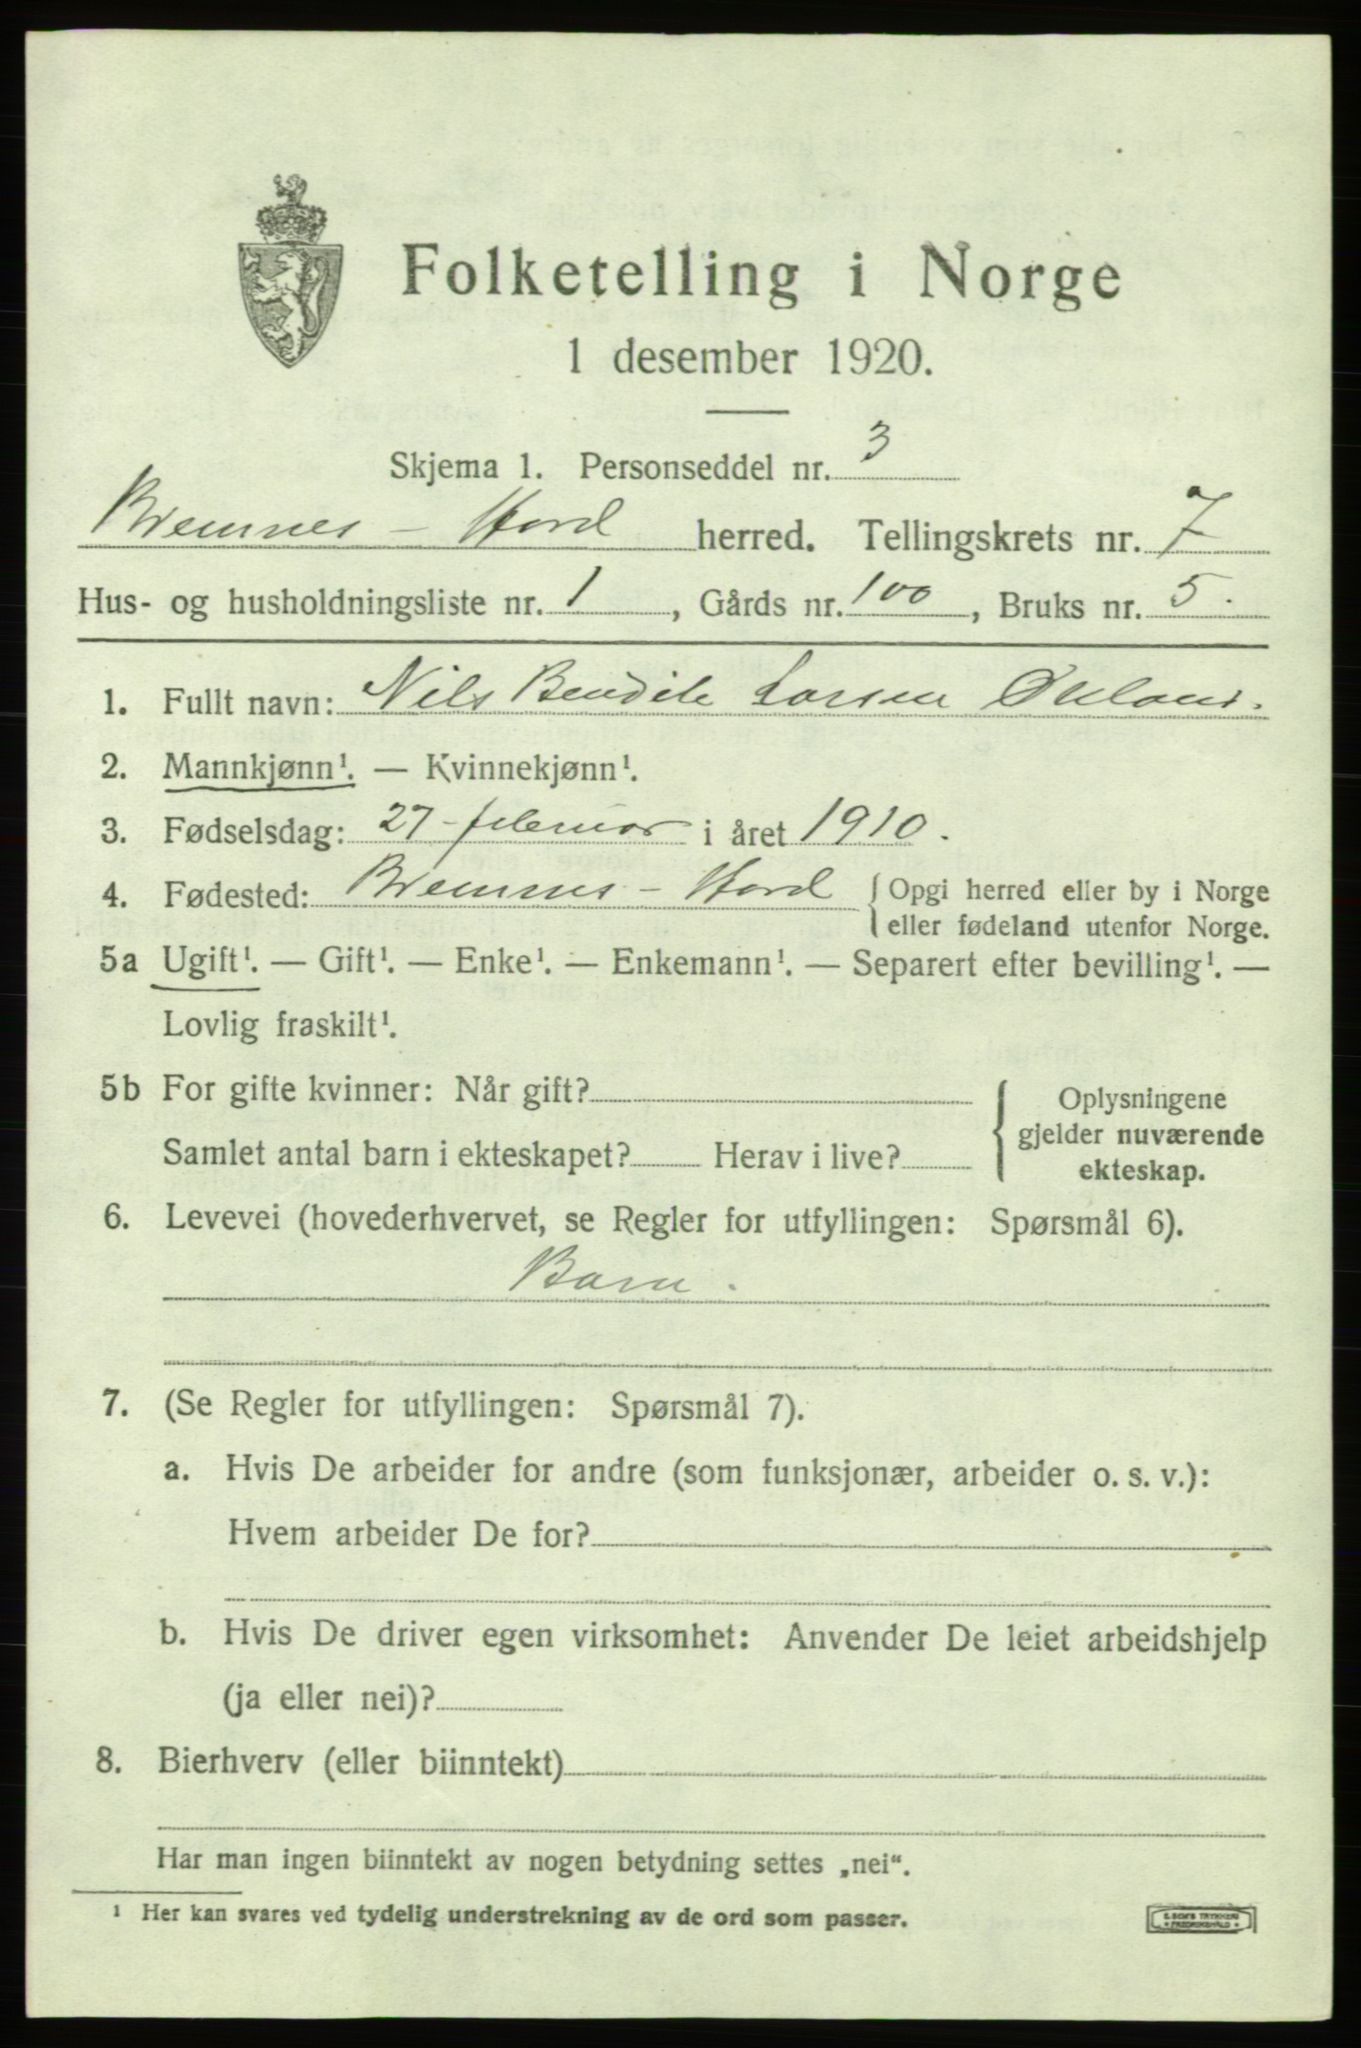 Folketelling i Norge
1 desember 1920.
Skjema 1. Personseddel nr. 3
Bremnes - Hord herred. Tellingskrets nr. 7
Hus- og husholdningsliste nr. 1, Gårds nr. 100, Bruks nr. 5.
1. Fullt navn: Nils Larsen
2. Mannkjønn¹. — Kvinnekjønn¹.
3. Fødselsdag: 27 - februar i året 1910.
4. Fødested: Bremnes - Hord { Opgi herred eller by i Norge
eller fødeland utenfor Norge.
5a Ugift¹. — Gift¹. — Enke¹. — Enkemann¹. — Separert efter bevilling¹. —
Lovlig fraskilt¹.
5b For gifte kvinner: Når gift?
Samlet antal barn i ekteskapet? Herav i live?
Oplysningene
gjelder nuværende
ekteskap.
6. Levevei (hovederhvervet, se Regler for utfyllingen: Spørsmål 6).
Barn.
7. (Se Regler for utfyllingen: Spørsmål 7).
a. Hvis De arbeider for andre (som funksjonær, arbeider o. s. v.):
Hvem arbeider De for?
b. Hvis De driver egen virksomhet: Anvender De leiet arbeidshjelp
(ja eller nei)?
8. Bierhverv (eller biinntekt)
Har man ingen biinntekt av nogen betydning settes „nei“.
¹ Her kan svares ved tydelig understrekning av de ord som passer.